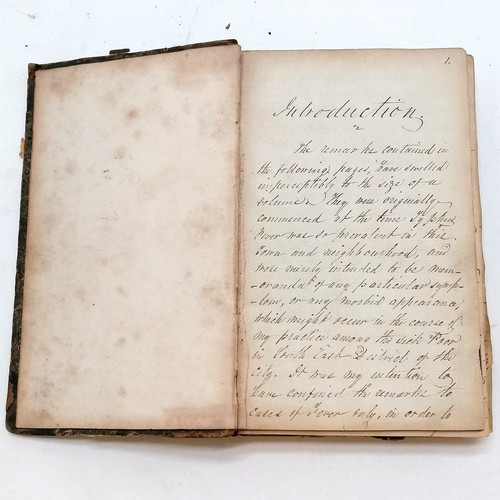 1.
Introduction.
The remarks contained in
the following pages, have swelled
imperceptibly to the size of a
volume. They were originally
commenced at the time Typhus
Fever was so prevalent in this
Town and neighbourhood, and
were merely intended to be mem-
-oranda of any particular symp-
-toms, or any morbid appearance,
which might occur in the course of
my practice among the sick Poor
in South East District of the
City. It was my intention to
have confined the remarks to
cases of Fever only, in order to